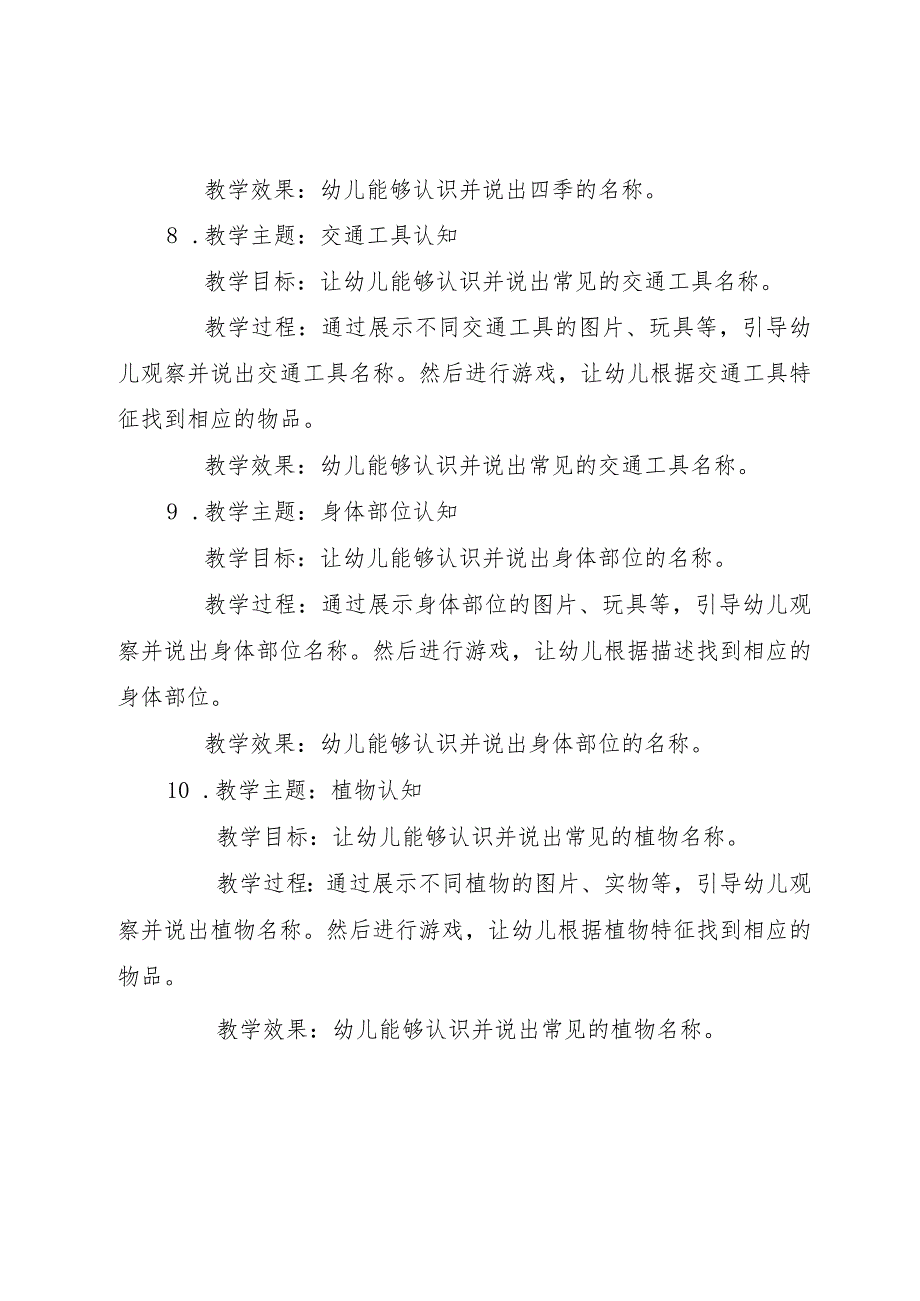 教学效果：幼儿能够认识并说出四季的名称。
8 .教学主题：交通工具认知
教学目标：让幼儿能够认识并说出常见的交通工具名称。
教学过程：通过展示不同交通工具的图片、玩具等，引导幼
儿观察并说出交通工具名称。然后进行游戏，让幼儿根据交通工具特
征找到相应的物品。
教学效果：幼儿能够认识并说出常见的交通工具名称。
9 .教学主题：身体部位认知
教学目标：让幼儿能够认识并说出身体部位的名称。
教学过程：通过展示身体部位的图片、玩具等，引导幼儿观
察并说出身体部位名称。然后进行游戏，让幼儿根据描述找到相应的
身体部位。
教学效果：幼儿能够认识并说出身体部位的名称。
10 .教学主题：植物认知
教学目标：让幼儿能够认识并说出常见的植物名称。
教学过程：通过展示不同植物的图片、实物等，引导幼儿观
察并说出植物名称。然后进行游戏，让幼儿根据植物特征找到相应的
物品。
教学效果：幼儿能够认识并说出常见的植物名称。